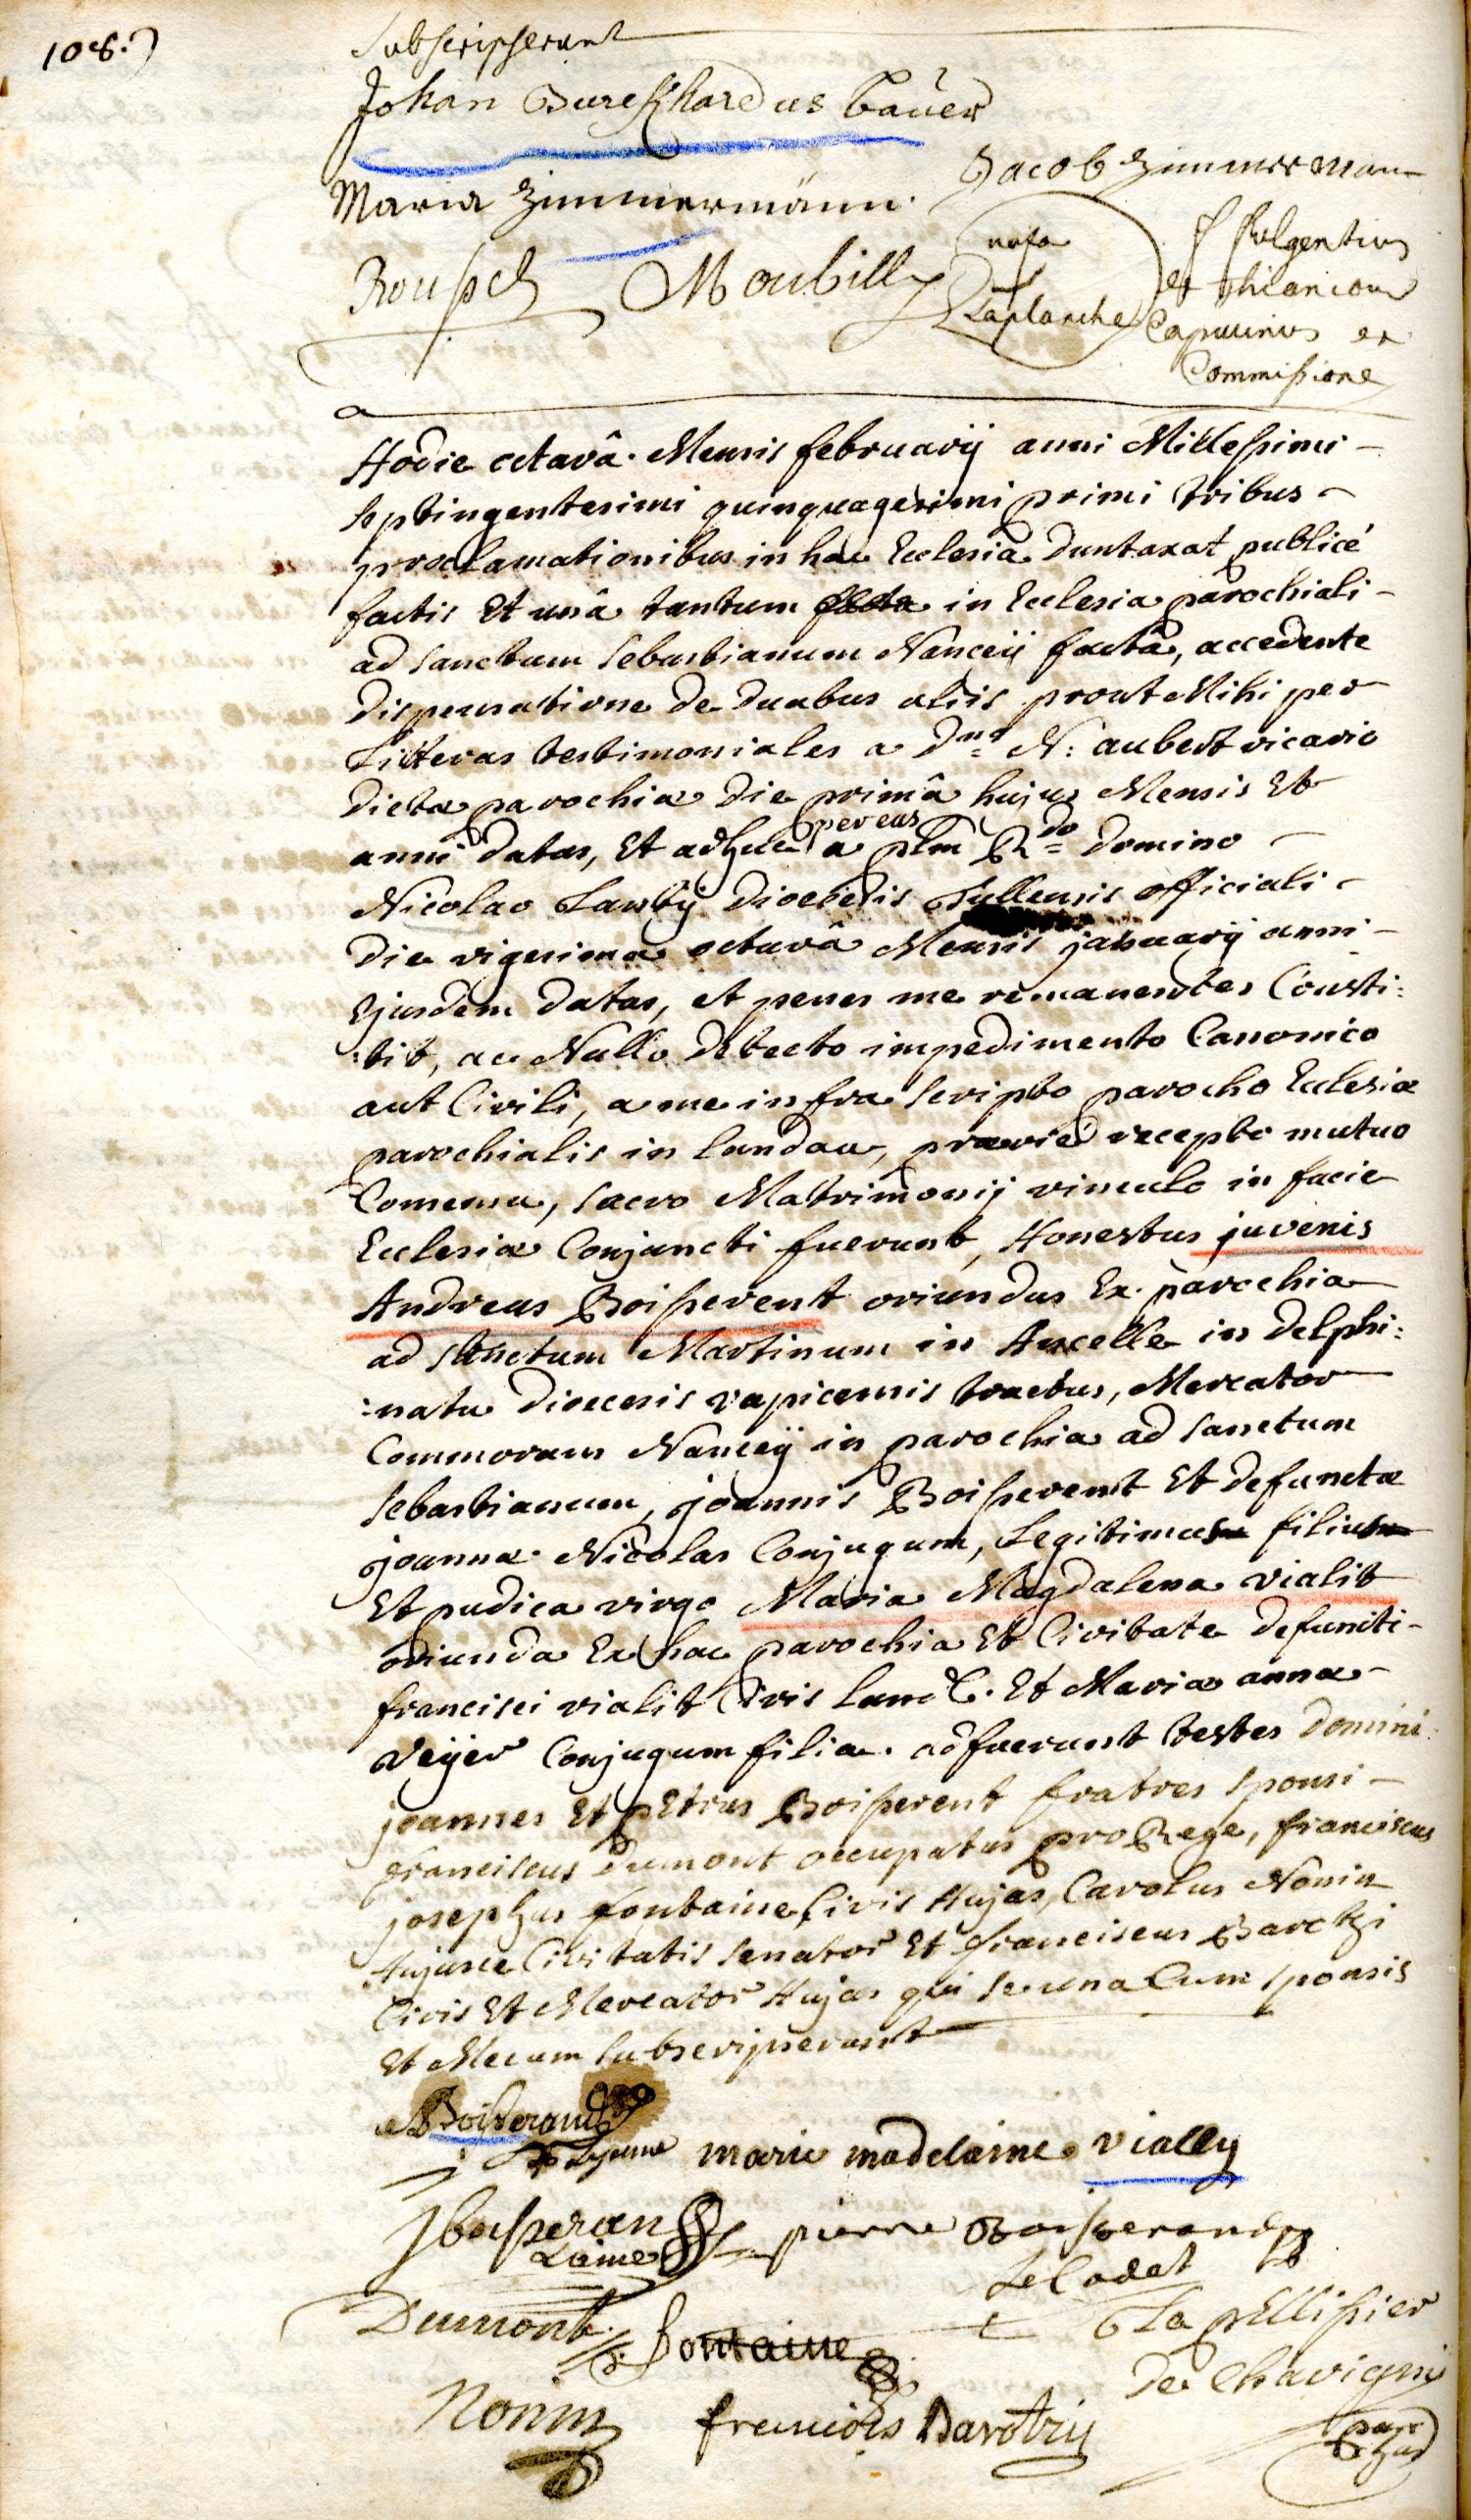 108.)
Subscripserunt
Johan Burckhardus Bauer
Jacob Zimmerman
Maria Zimmermann.
Roussel Moubilly nota Laplanche
f fulgentius
et thiancour
Capucinus ex
Commissione
Hodie octavâ Mensis februarij anni Millessimi
septingentesimi quinquagesimi primi tribus
proclamationibus in hac Ecclesia duntaxat publicé
factis Et unâ tantum facta in Ecclesia parochiali
ad sanctum Sebastianum Nanceij factâ, accedente
dispensatione de duabus aliis prout Mihi per
Litteras testimoniales a Dno N: aubert vicario
dictæ parochiæ die primâ hujus Mensis Et
anni datas, Et adhuc per eas a plm Rdo Domino
Nicolao Lanty Diœcesis Tullensis officiali
die vigesima octavâ Mensis januarij anni
Ejusdem datas, et penes me remanentes Consti:
:tit, ac Nullo detecto impedimento Canonico
aut Civili, a me infra scripto parocho Ecclesiæ
parochialis in landau, prævié recepto mutuo
Consensu, sacro Matrimonij vinculo in facie
Ecclesiæ Conjuncti fuerunt, Honestus juvenis
Andreas Boisserent oriundus Ex parochia
ad sanctum Martinum in Ancelle in delphi:
:natu diœcesis vapicensis tractus, Mercator
Commorans Nanceij in parochia ad sanctum
Sebastianum, joannis Boisserent Et defunctæ
joannæ Nicolas Conjugum, Legitimus filius
Et pudica virgo Maria Magdalena vialit
oriunda Ex hac parochia Et Civitate defuncti
francisci vialit Civis land. Et Mariæ annæ
Veijer Conjugum filia. adfuerunt testes Domini
joannes Et pEtrus Boisserent fratres sponsi
franciscus Dumont occupatus pro Rege, franciscus
josephus fontaine Civis Hujas, Carolus Nonin
Hujusce Civitatis senator Et franciscus Barotzi
Civis Et Mercator Hujas qui se una Cum sponsis
Et Mecum subscripserunt
A Boisserand
Lejeune marie madelaine vially
J boisseran
Laine pierre Boisserand
Le Cadet
Dumont fontaine La pEllissier
De Chavigni
Nonin francois Barotzij